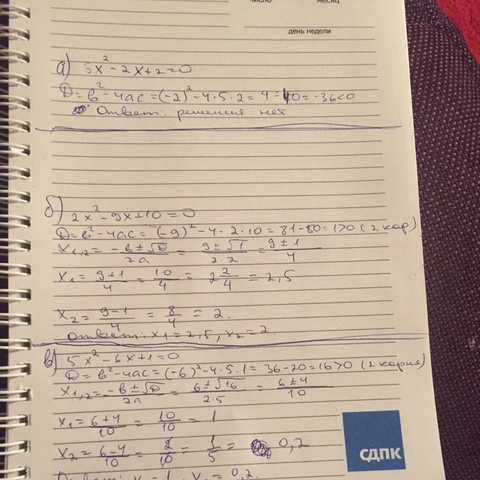 число месяц
день недели
а) 5x² - 2x + 2 = 0
D = b² - 4ac = (-2)² - 4·5·2 = 4 - 40 = -36 < 0
Ответ: решения нет
б) 2x² - 9x + 10 = 0
D = b² - 4ac = (-9)² - 4·2·10 = 81 - 80 = 1 > 0 (2 кор)
x₁,₂ = (-b ± √D)/2a = (9 ± √1)/2·2 = (9 ± 1)/4
x₁ = (9+1)/4 = 10/4 = 2 2/4 = 2,5
x₂ = (9-1)/4 = 8/4 = 2.
Ответ: x₁ = 2,5, x₂ = 2
в) 5x² - 6x + 1 = 0
D = b² - 4ac = (-6)² - 4·5·1 = 36 - 20 = 16 > 0 (2 корня)
x₁,₂ = (-b ± √D)/2a = (6 ± √16)/2·5 = (6 ± 4)/10
x₁ = (6+4)/10 = 10/10 = 1
x₂ = (6-4)/10 = 2/10 = 1/5 = 0,2
СДПК
Ответ: x₁ = 1, x₂ = 0,2.